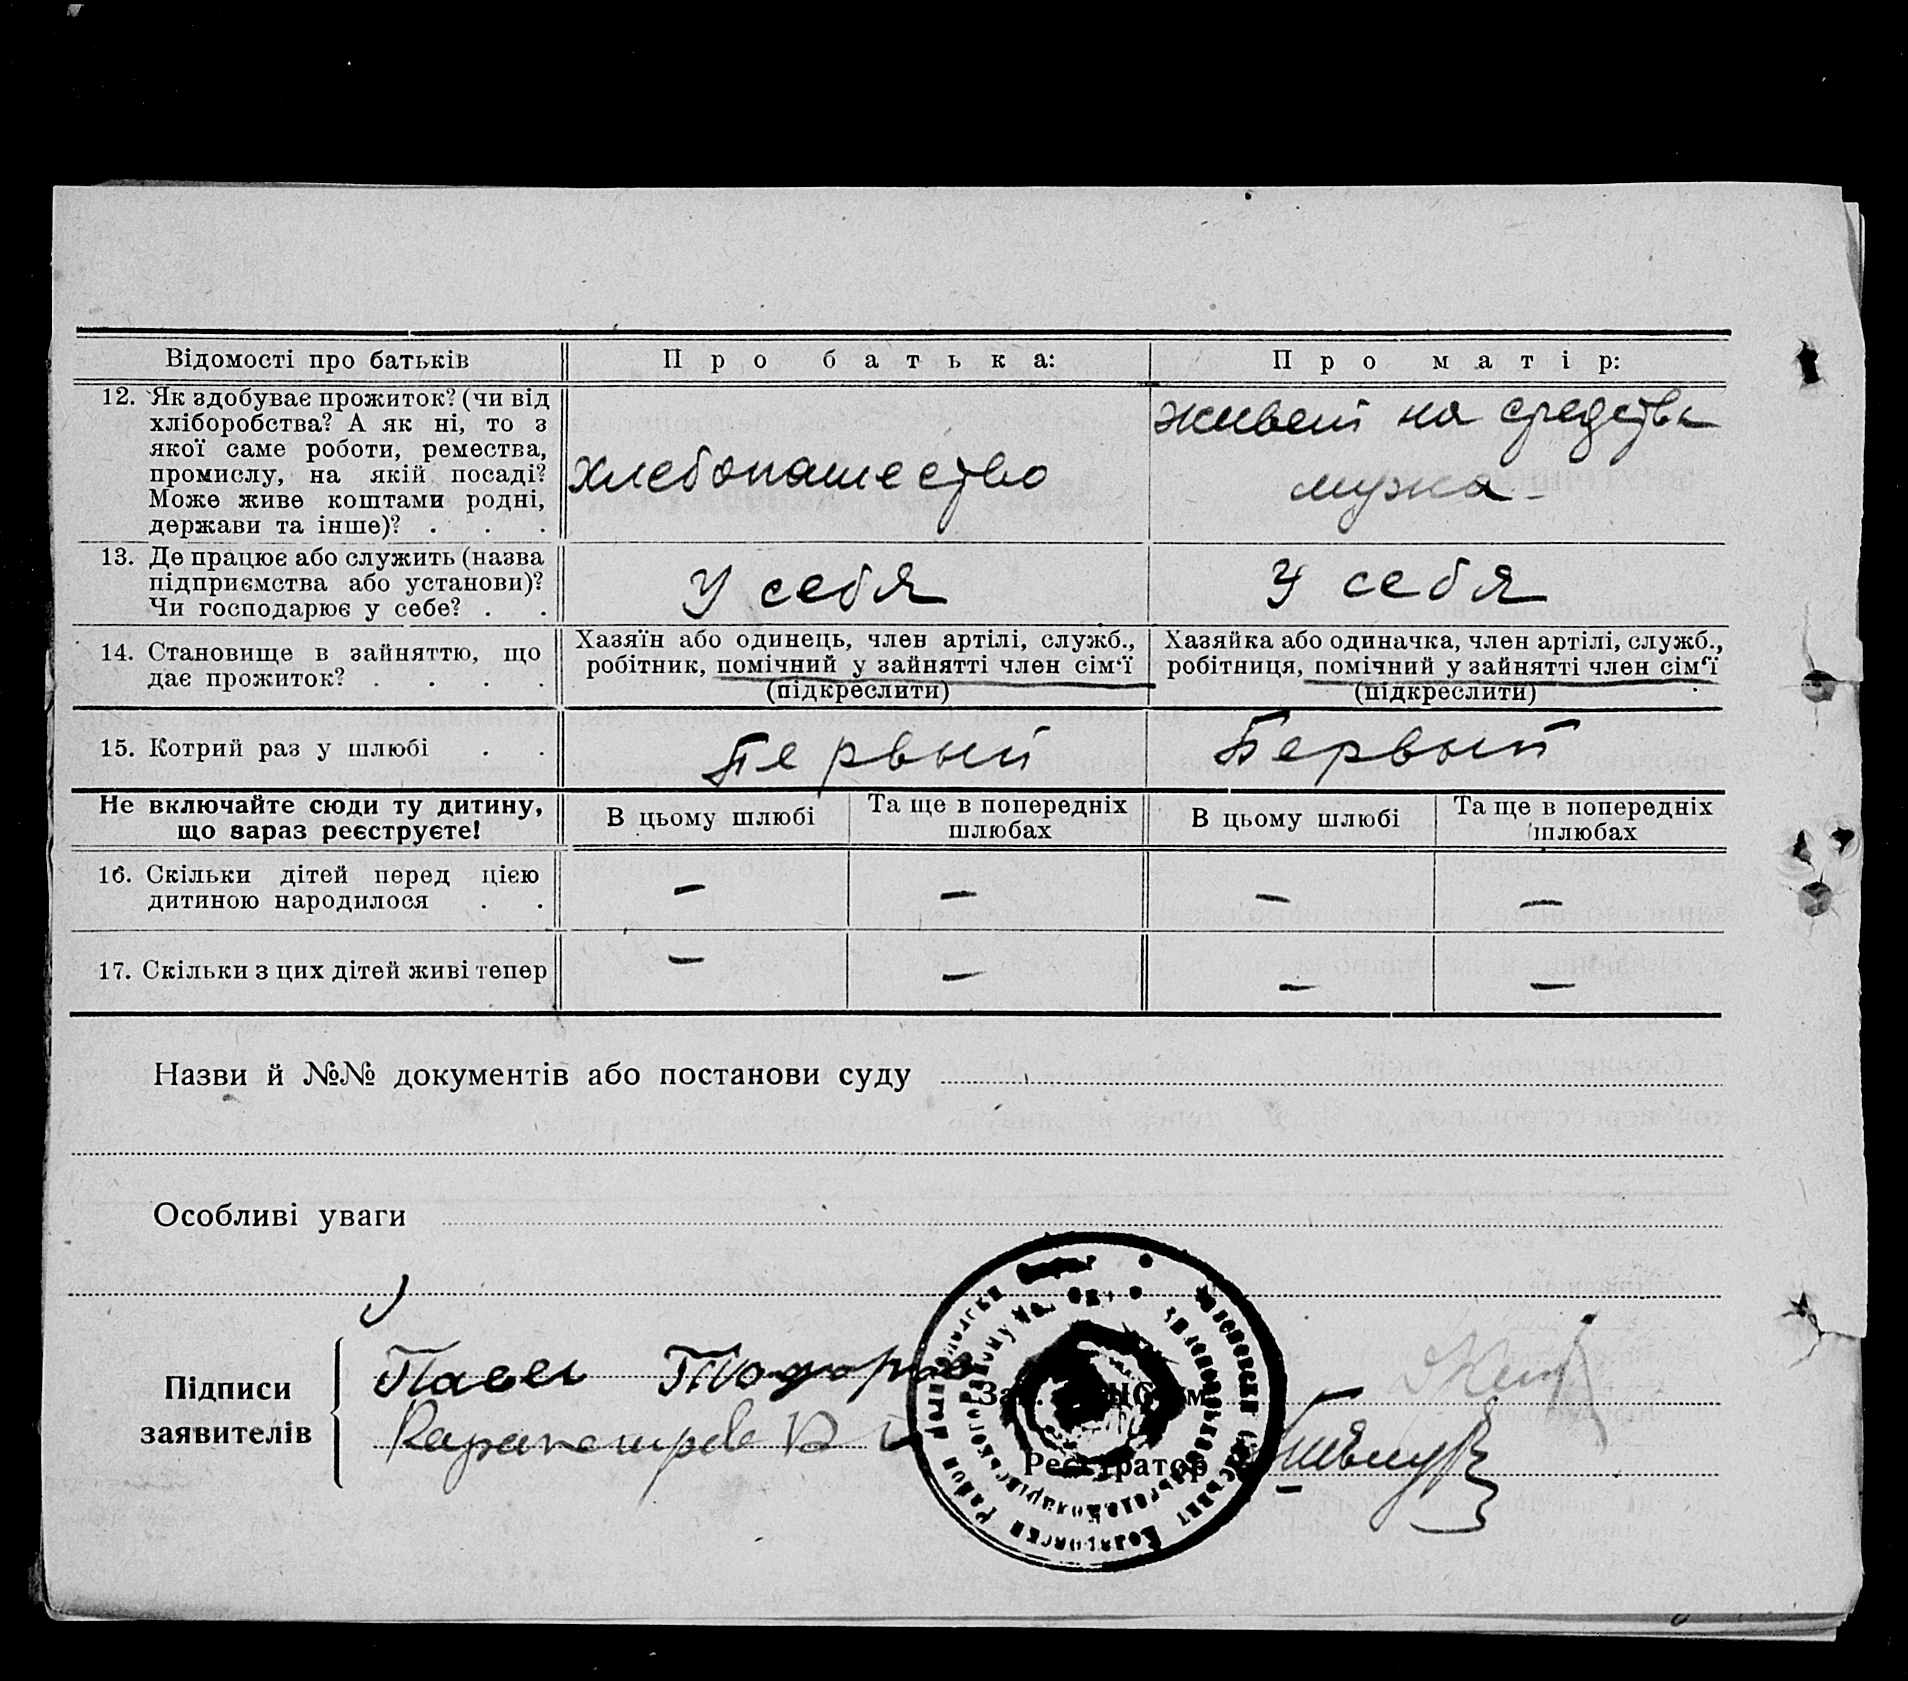 Відомості про батьків
Про батька:
Про матір:
12. Як здобуває прожиток? (чи від
хліборобства? А як ні, то з
якої саме роботи, ремества,
промислу, на якій посаді?
Може живе коштами родні,
держави та інше)? . . .
хлебопашество
живет на средства
мужа
13. Де працює або служить (назва
підприємства або установи)?
Чи господарює у себе? . .
У себя
У себя
14. Становище в зайняттю, що
дає прожиток? . . . .
Хазяїн або одинець, член артілі, служб.,
робітник, помічний у зайнятті член сім'ї
(підкреслити)
Хазяйка або одиначка, член артілі, служб.,
робітниця, помічний у зайнятті член сім'ї
(підкреслити)
15. Котрий раз у шлюбі . .
Первый
Первый
Не включайте сюди ту дитину,
що зараз реєструєте!
В цьому шлюбі
Та ще в попередніх
шлюбах
В цьому шлюбі
Та ще в попередніх
шлюбах
16. Скільки дітей перед цією
дитиною народилося . .
— — — —
17. Скільки з цих дітей живі тепер
— — — —
Назви й №№ документів або постанови суду
Особливі уваги
Підписи
заявителів
Павел Тодоров
Зав.
Реєстратор